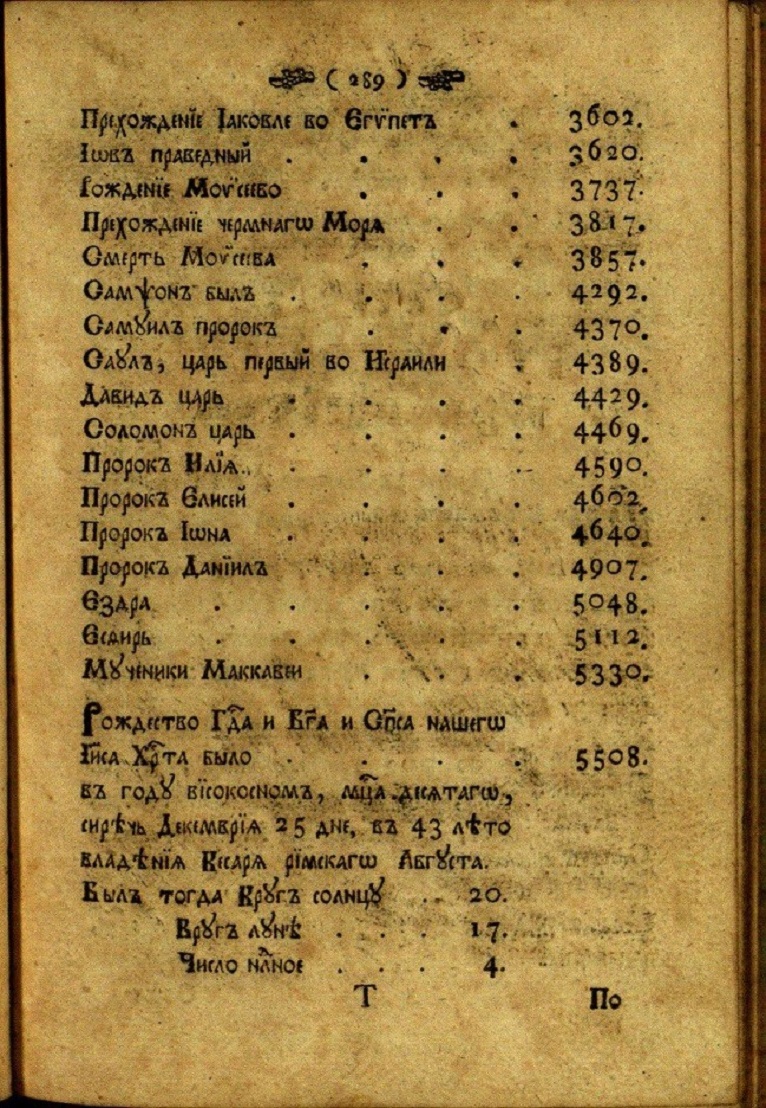 ( 289 )
Прехожденїе Їаковле во Егѵ́петъ . 3602.
Їѡвъ праведный . . . . 3620.
Рожденїе Моѷсеево . . . 3737.
Прехожденїе чермнагѡ Моря . . 3817.
Смерть Моѷсеева . . . 3857.
Самѱонъ былъ . . . . 4292.
Самꙋилъ пророкъ . . . 4370.
Саꙋлъ, царь первый во Исраили . 4389.
Давидъ царь . . . . 4429.
Соломонъ царь . . . . 4469.
Пророкъ Илїѧ . . . . 4590.
Пророкъ Елисей . . . . 4602.
Пророкъ Їѡна . . . . 4640.
Пророкъ Данїилъ . . . 4907.
Ездра . . . . . 5048.
Есѳирь . . . . . 5112.
Мꙋченики Маккавеи . . . 5330.
Рождество Гд҇а и Бг҃а и Сп҃са нашегѡ
Їи҃са Хр҇та было . . . . 5508.
въ годꙋ вїсокосномъ, мц҇а десѧтагѡ,
сирѣчь Декемврїѧ 25 дне, въ 43 лѣто
владѣнїѧ Кесарѧ рїмскагѡ Авгꙋста.
Былъ тогда Крꙋгъ солнцꙋ . . 20.
Крꙋгъ лꙋнѣ . . . 17.
Число нл҇ное . . . 4.
Т По